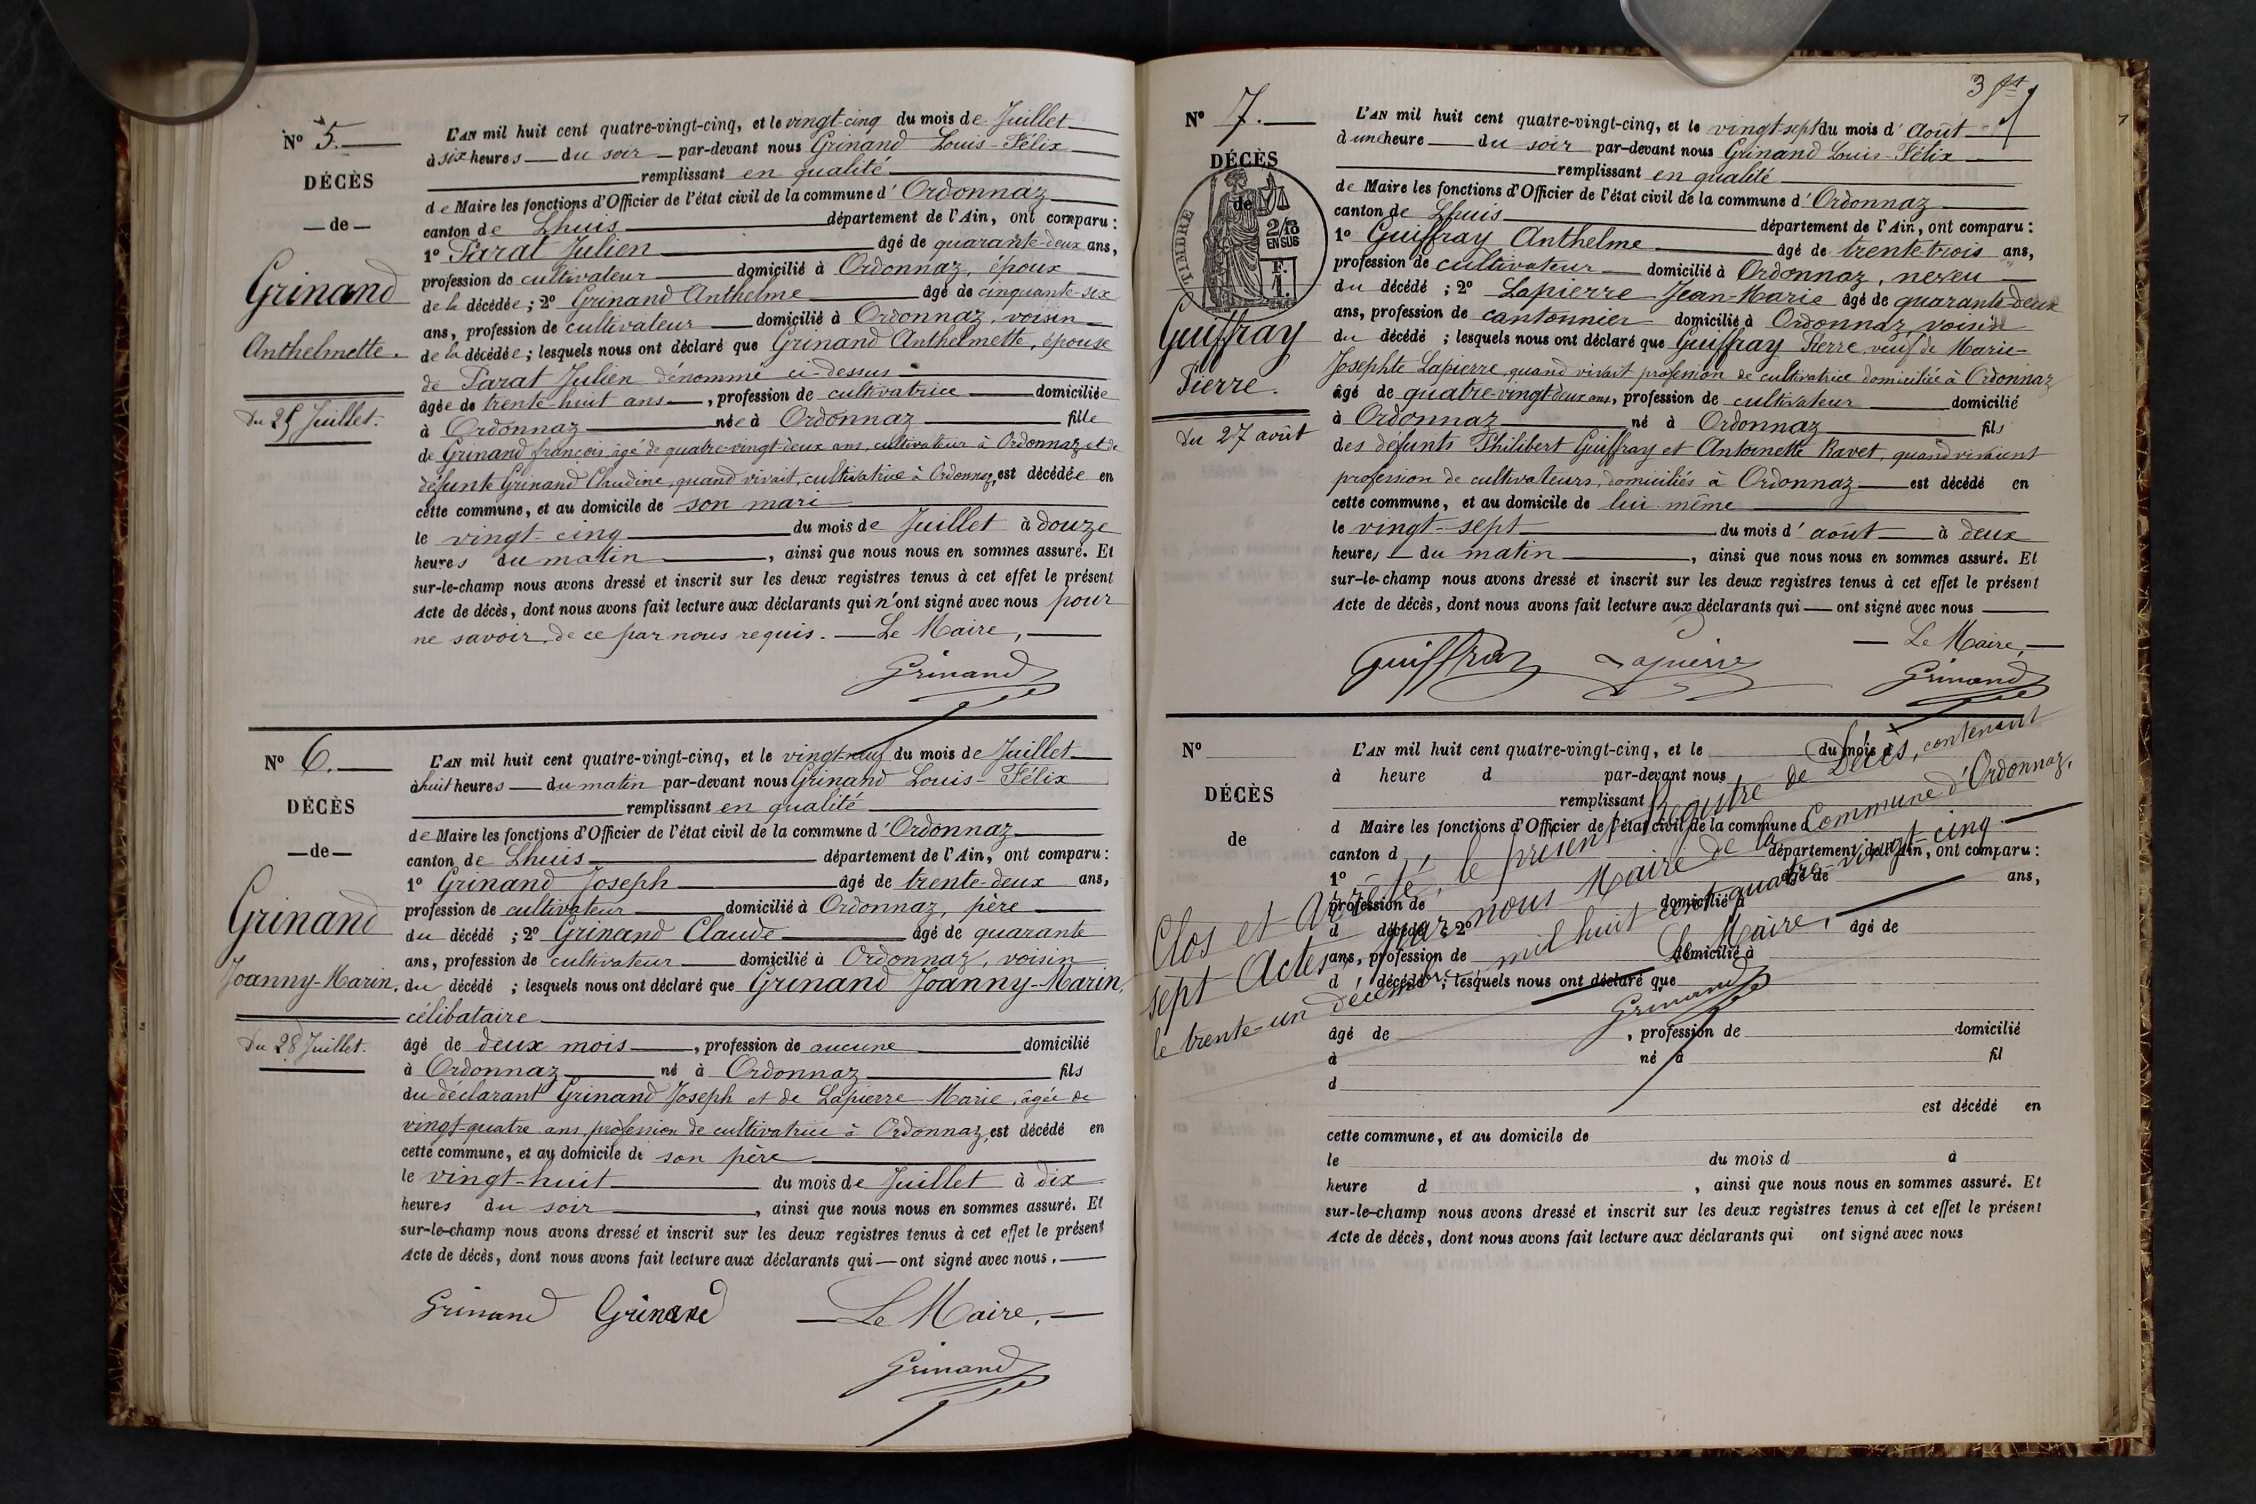 N° 5.
DÉCÈS
de
Grinand
Anthelmette.
Du 25 Juillet.
L'AN mil huit cent quatre-vingt-cinq, et le vingt-cinq du mois de Juillet
à six heures du soir par-devant nous Grinand Louis-Félix
remplissant en qualité
de Maire les fonctions d'Officier de l'état civil de la commune d'Ordonnaz
canton de Lhuis département de l'Ain, ont comparu :
1° Parat Julien âgé de quarante-deux ans,
profession de cultivateur domicilié à Ordonnaz, époux
de la décédée ; 2° Grinand Anthelme âgé de cinquante-six
ans, profession de cultivateur domicilié à Ordonnaz, voisin
de la décédée ; lesquels nous ont déclaré que Grinand Anthelmette, épouse
de Parat Julien dénommé ci-dessus
âgée de trente-huit ans, profession de cultivatrice domiciliée
à Ordonnaz née à Ordonnaz fille
de Grinand françois, âgé de quatre-vingt-deux ans, cultivateur à Ordonnaz et de
défunte Grinand Claudine, quand vivait, cultivatrice à Ordonnaz, est décédée en
cette commune, et au domicile de son mari
le vingt-cinq du mois de Juillet à douze
heures du matin, ainsi que nous nous en sommes assuré. Et
sur-le-champ nous avons dressé et inscrit sur les deux registres tenus à cet effet le présent
Acte de décès, dont nous avons fait lecture aux déclarants qui n'ont signé avec nous pour
ne savoir, de ce par nous requis. Le Maire,
Grinand
N° 6.
DÉCÈS
de
Grinand
Joanny-Marin.
Du 28 Juillet.
L'AN mil huit cent quatre-vingt-cinq, et le vingt-neuf du mois de Juillet
à huit heures du matin par-devant nous Grinand Louis-Félix
remplissant en qualité
de Maire les fonctions d'Officier de l'état civil de la commune d'Ordonnaz
canton de Lhuis département de l'Ain, ont comparu :
1° Grinand Joseph âgé de trente-deux ans,
profession de cultivateur domicilié à Ordonnaz, père
du décédé ; 2° Grinand Claude âgé de quarante
ans, profession de cultivateur domicilié à Ordonnaz, voisin
du décédé ; lesquels nous ont déclaré que Grinand Joanny-Marin,
célibataire
âgé de deux mois, profession de aucune domicilié
à Ordonnaz né à Ordonnaz fils
du déclarant Grinand Joseph et de Lapierre Marie, âgée de
vingt-quatre ans, profession de cultivatrice à Ordonnaz, est décédé en
cette commune, et au domicile de son père
le vingt-huit du mois de Juillet à dix
heures du soir, ainsi que nous nous en sommes assuré. Et
sur-le-champ nous avons dressé et inscrit sur les deux registres tenus à cet effet le présent
Acte de décès, dont nous avons fait lecture aux déclarants qui ont signé avec nous.
Grinand Grinand Le Maire,
Grinand
N° 7.
DÉCÈS
de
TIMBRE
2/10
EN SUS
F.
1.
Guiffray
Pierre.
Du 27 août
L'AN mil huit cent quatre-vingt-cinq, et le vingt-sept du mois d'août
à une heure du soir par-devant nous Grinand Louis-Félix
remplissant en qualité
de Maire les fonctions d'Officier de l'état civil de la commune d'Ordonnaz
canton de Lhuis département de l'Ain, ont comparu :
1° Guiffray Anthelme âgé de trente-trois ans,
profession de cultivateur domicilié à Ordonnaz, neveu
du décédé ; 2° Lapierre Jean-Marie âgé de quarante-deux
ans, profession de cantonnier domicilié à Ordonnaz, voisin
du décédé ; lesquels nous ont déclaré que Guiffray Pierre, veuf de Marie-
Josephte Lapierre, quand vivait profession de cultivatrice domiciliée à Ordonnaz
âgé de quatre-vingt-deux ans, profession de cultivateur domicilié
à Ordonnaz né à Ordonnaz fils
des défunts Philibert Guiffray et Antoinette Ravet, quand vivaient
profession de cultivateurs, domiciliés à Ordonnaz est décédé en
cette commune, et au domicile de lui-même
le vingt-sept du mois d'août à deux
heures du matin, ainsi que nous nous en sommes assuré. Et
sur-le-champ nous avons dressé et inscrit sur les deux registres tenus à cet effet le présent
Acte de décès, dont nous avons fait lecture aux déclarants qui ont signé avec nous
Le Maire,
Guiffray Lapierre Grinand
N°
DÉCÈS
de
L'AN mil huit cent quatre-vingt-cinq, et le du mois d
à heure d par-devant nous
remplissant
d Maire les fonctions d'Officier de l'état civil de la commune d
canton d département de l'Ain, ont comparu :
1° âgé de ans,
profession de domicilié à
d décédé ; 2° âgé de
ans, profession de domicilié à
d décédé ; lesquels nous ont déclaré que
âgé de , profession de domicilié
à né à fil
d
est décédé en
cette commune, et au domicile de
le du mois d à
heure d , ainsi que nous nous en sommes assuré. Et
sur-le-champ nous avons dressé et inscrit sur les deux registres tenus à cet effet le présent
Acte de décès, dont nous avons fait lecture aux déclarants qui ont signé avec nous
Clos et Arrêté, le présent Registre de Décès, contenant
sept Actes, par nous Maire de la Commune d'Ordonnaz,
le trente-un décembre mil huit cent quatre-vingt-cinq
Le Maire,
Grinand